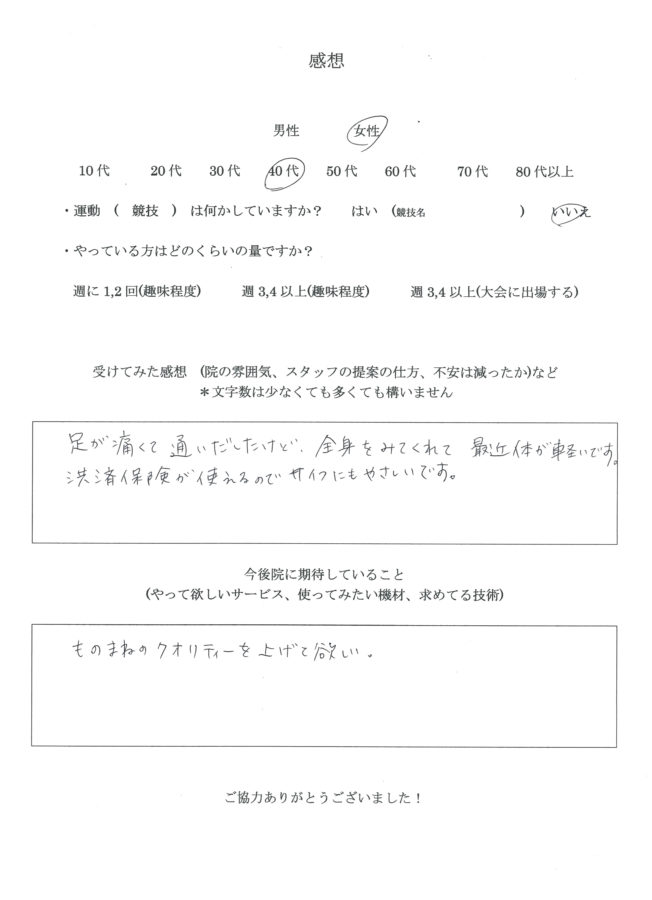 感想
男性 女性
10代 20代 30代 40代 50代 60代 70代 80代以上
・運動 ( 競技 ) は何かしていますか? はい (競技名 ) いいえ
・やっている方はどのくらいの量ですか?
週に1,2回(趣味程度) 週3,4以上(趣味程度) 週3,4以上(大会に出場する)
受けてみた感想 (院の雰囲気、スタッフの提案の仕方、不安は減ったか)など
*文字数は少なくても多くても構いません
足が痛くて通いだしたけど、全身をみてくれて 最近体が軽いです。
洪済保険が使えるのでサイフにもやさしいです。
今後院に期待していること
(やって欲しいサービス、使ってみたい機材、求めてる技術)
ものまねのクオリティーを上げて欲しい。
ご協力ありがとうございました!